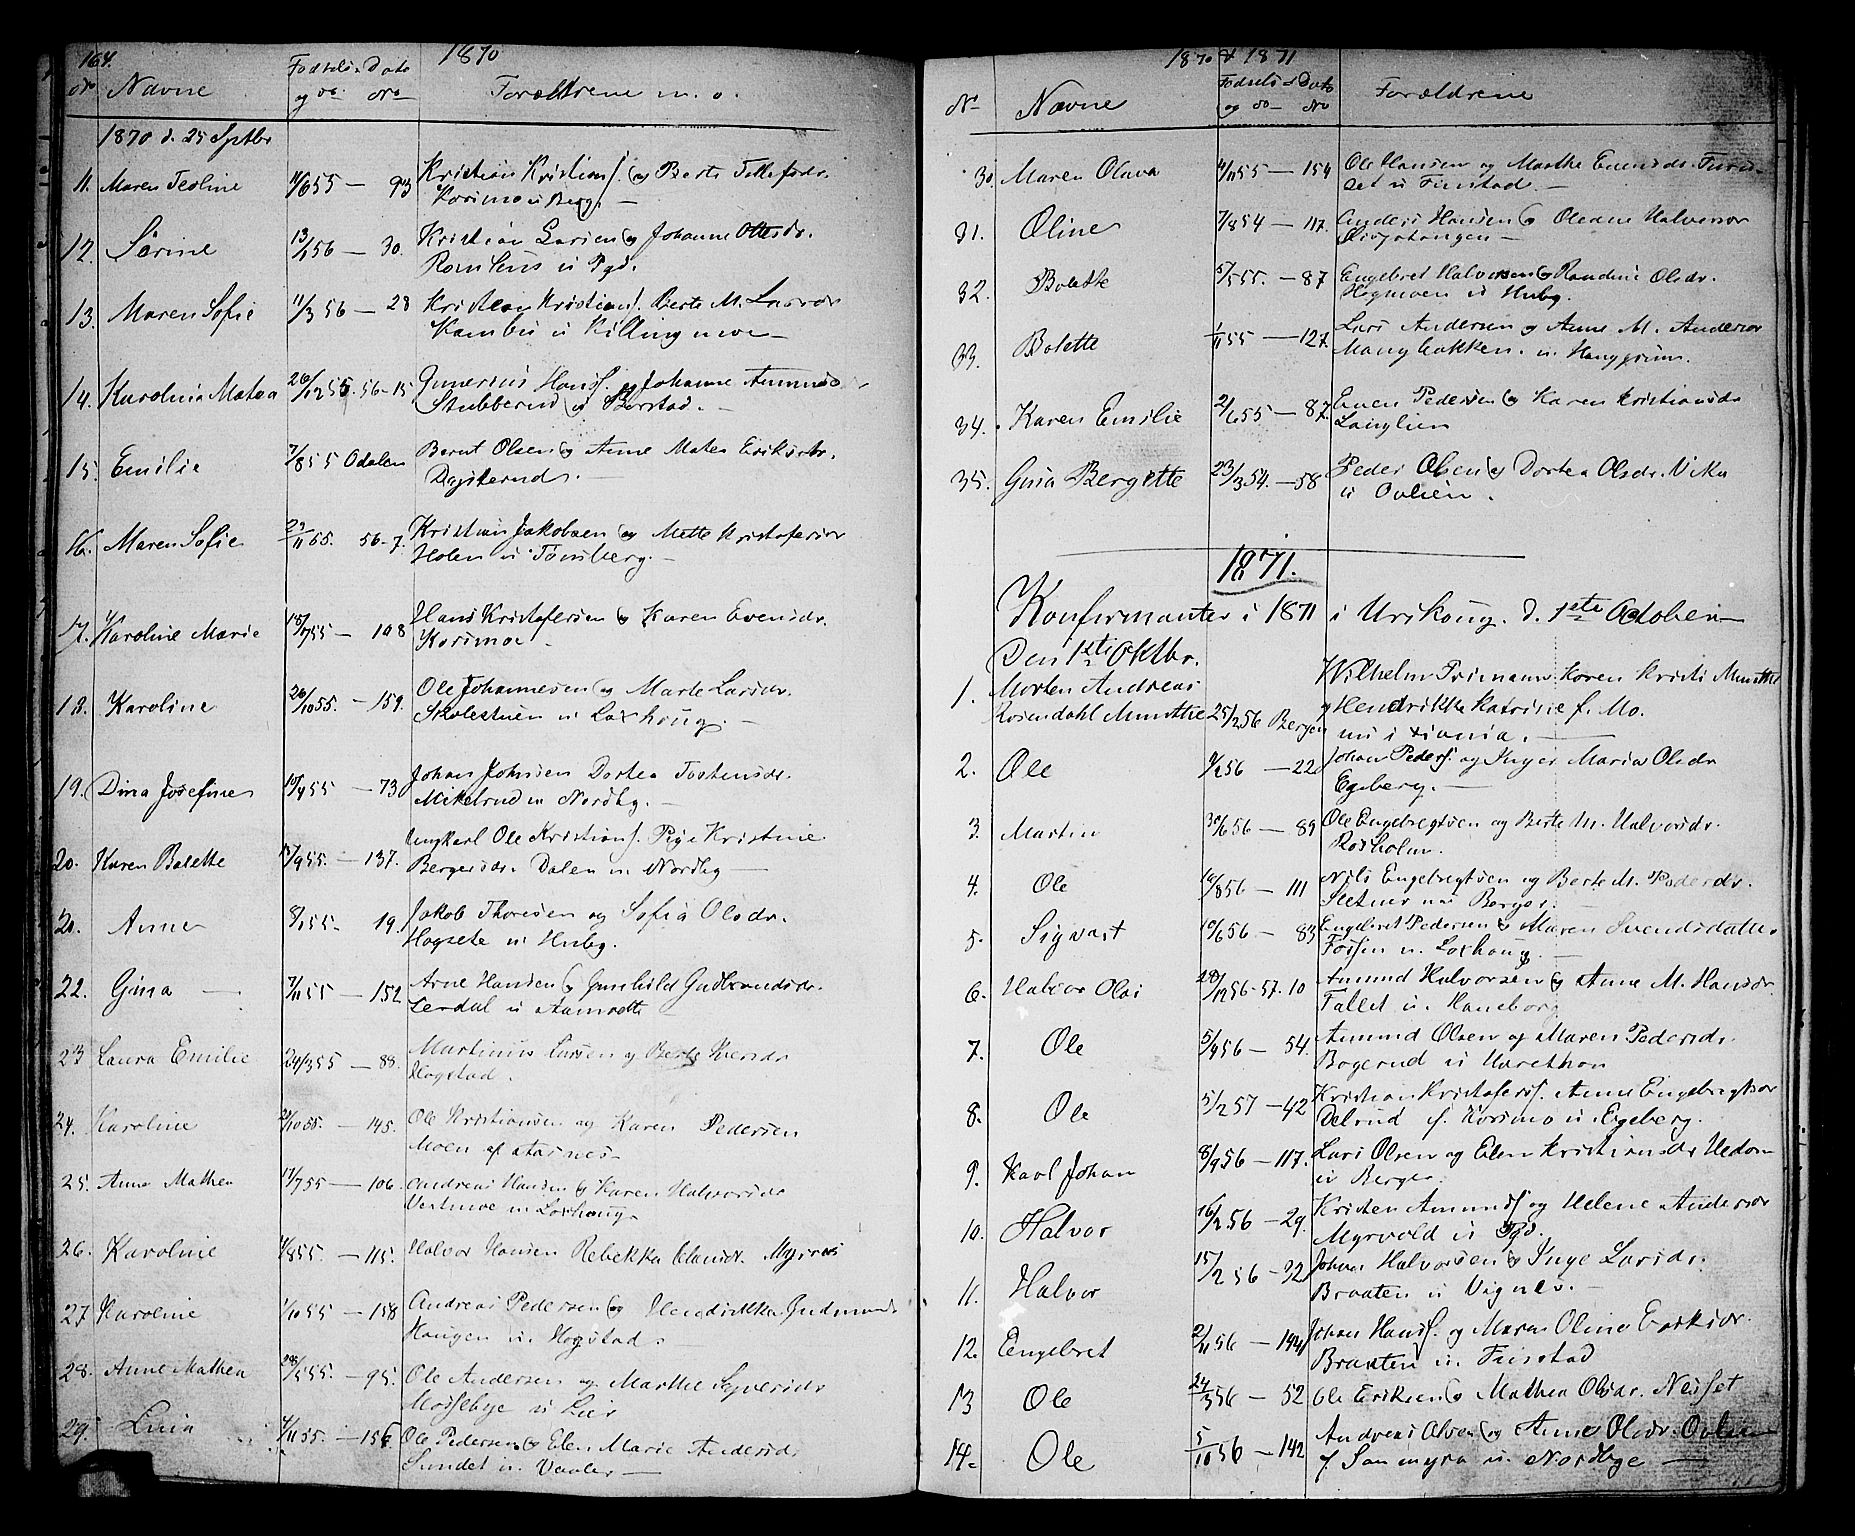 164.
1870
No Navne Fødsels Dato og do No Forældrene m. o.
1870 d. 25 Sptbr
11. Maren Teoline 11/6 55 — 93 Kristian Kristians. og Berte
Korsmo u Berg. —
12. Sørine 13/1 56 — 30. Kristian Larsen og Johanne Olsdr.
u Pgd.
13. Maren Sofie 11/3 56 — 28 Kristian Kristians. Berte M. Larsdr
u Killingmoe —
14. Karoline Matea 26/12 55. 56-15 Gunerius Hans. og Johanne Amunds
Stubberud u Rørstad. —
15. Emilie 7/8 55 Odalen Bernt Olsen og Anne Matea Eriksdr.
16. Maren Sofie 29/11 55. 56-7. Kristian Jakobsen og Mette Kristofersdr
Holen u Tønsberg. —
17. Karoline Marie 15/7 55 — 108 Hans Kristofersen og Karen Evensdr.
Korsmoe —
18. Karoline 26/10 55. — 159. Ole Johannesen og Marte Larsdr.
Skolestuen u Loxhoug. —
19. Dina Josefine 10/4 55 — 73 Johan Johnsen Dortea Tostensdr.
Mikelrud u Nordby. —
20. Karen Bolette 17/9 55. — 137. Ungkarl Ole Kristians. Pige Kristine
Bergersdr. Dalen u. Nordby —
20. Anne 8/1 55 — 19. Jakob Thoresen og Sofia Olsdr.
Hogsete u Huseby.
22. Gina — 7/11 55 — 152 Arne Hansen og Gunhild Gudbrandsdr.
Lerdal u
23 Laura Emilie 24/3 55 — 88. Martinus Larsen og Berte
Hogstad.
24. Karoline 2/10 55. — 145. Ole Kristiansen og Karen Pedersen
Moen af Aarnes —
25. Anne Mathea 17/7 55 — 106. Andreas Hansen og Karen Halvorsdr
Vestmoe u Loxhoug
26. Karoline 4/8 55 — 115. Halvor Hansen Rebekka Olausdr.
27 Karoline 1/10 55 — 158 Andreas Pedersen og Hendrikke Gudmunds
Haugen u. Hogstad.
28. Anne Mathea 28/5 55. — 95. Ole Andersen og Marthe
u Lier
29. Lina 4/11 55 — 156 Ole Pedersen og Elen Marie Andersdr
Sundet u. Vaaler —
1870 & 1871
No Navne Fødsels Dato og do No Forældrene
30. Maren Olava 4/11 55 — 154 Ole Hansen og Marthe Evensdr.
u Finstad —
31. Oline 7/8 54 — 117. Anders Hansen og Oleane Halvorsdr
32. Bolette 5/5 55. — 87 Engebret Halvorsen og Randine Olsdr.
Hogmoen u Huby.
33. Bolette 1/11 55 — 127. Lars Andersen og Anne M. Andersdr
34. Karen Emilie 2/6 55 — 87. Even Pedersen og Karen Kristiansdr
Langlien
35. Gina Bergette 23/3 54. — 58 Peder Olsen og Dortea Olsdr. Vika
u Ovlien.
1871.
Konfirmanter i 1871 i Urskoug. d. 1ste October —
Den 1ste Oktbr.
1. Morten Andreas
Rosendahl Munthe 25/2 56 Bergen Wilhelm Karen Kristi Munthe
og Hendrikke Katrine f. Mo.
nu i Xiania. —
2. Ole 9/2 56 — 22 Johan Peders. og Inger Maria Olsdr
Egeberg. —
3. Martin 30/6 56 — 89 Ole Engebregtsen og Berte M. Halvorsdr.
Roxholm.
4. Ole 16/8 56 — 111 Nils Engebregtsen og Berte M. Pedersdr.
Sletner u Berger.
5. Sigvart 10/6 56 — 83 Engebret Pedersen og Maren Svendsdatter
Fossen u. Loxhoug. —
6. Halvor Olai 28/12 56-57. 10 Amund Halvorsen og Anne M. Hansdr.
Fallet u. Haneborg
7. Ole 5/4 56 — 54. Amund Olsen og Maren Pedersdr.
Bogerud u
8. Ole 5/2 57 — 42 Kristian Kristofers. Anne Engebregtsdr
f. Korsmo u. Egeberg.
9. Karl Johan 8/9 56 — 117. Lars Olsen og Elen Kristiansdr
u Berger
10. Halvor 16/2 56 — 29. Kristen Amunds. og Helene Andersdr
Myrvold u Pgd.
11. Halvor 15/2 56 — 32 Johan Halvorsen og Inge Larsdr.
Braaten u Vignes. —
12. Engebret 2/11 56 — 144 Johan Hans. og Maren Oline
Braaten u. Finstad
13 Ole 24/3 56 — 52 Ole Eriksen og Mathea Olsdr. Nesset
14. Ole 5/10 56 — 142 Andreas Olsen og Anne Olsdr. Ovlien
f. u. Nordbye —